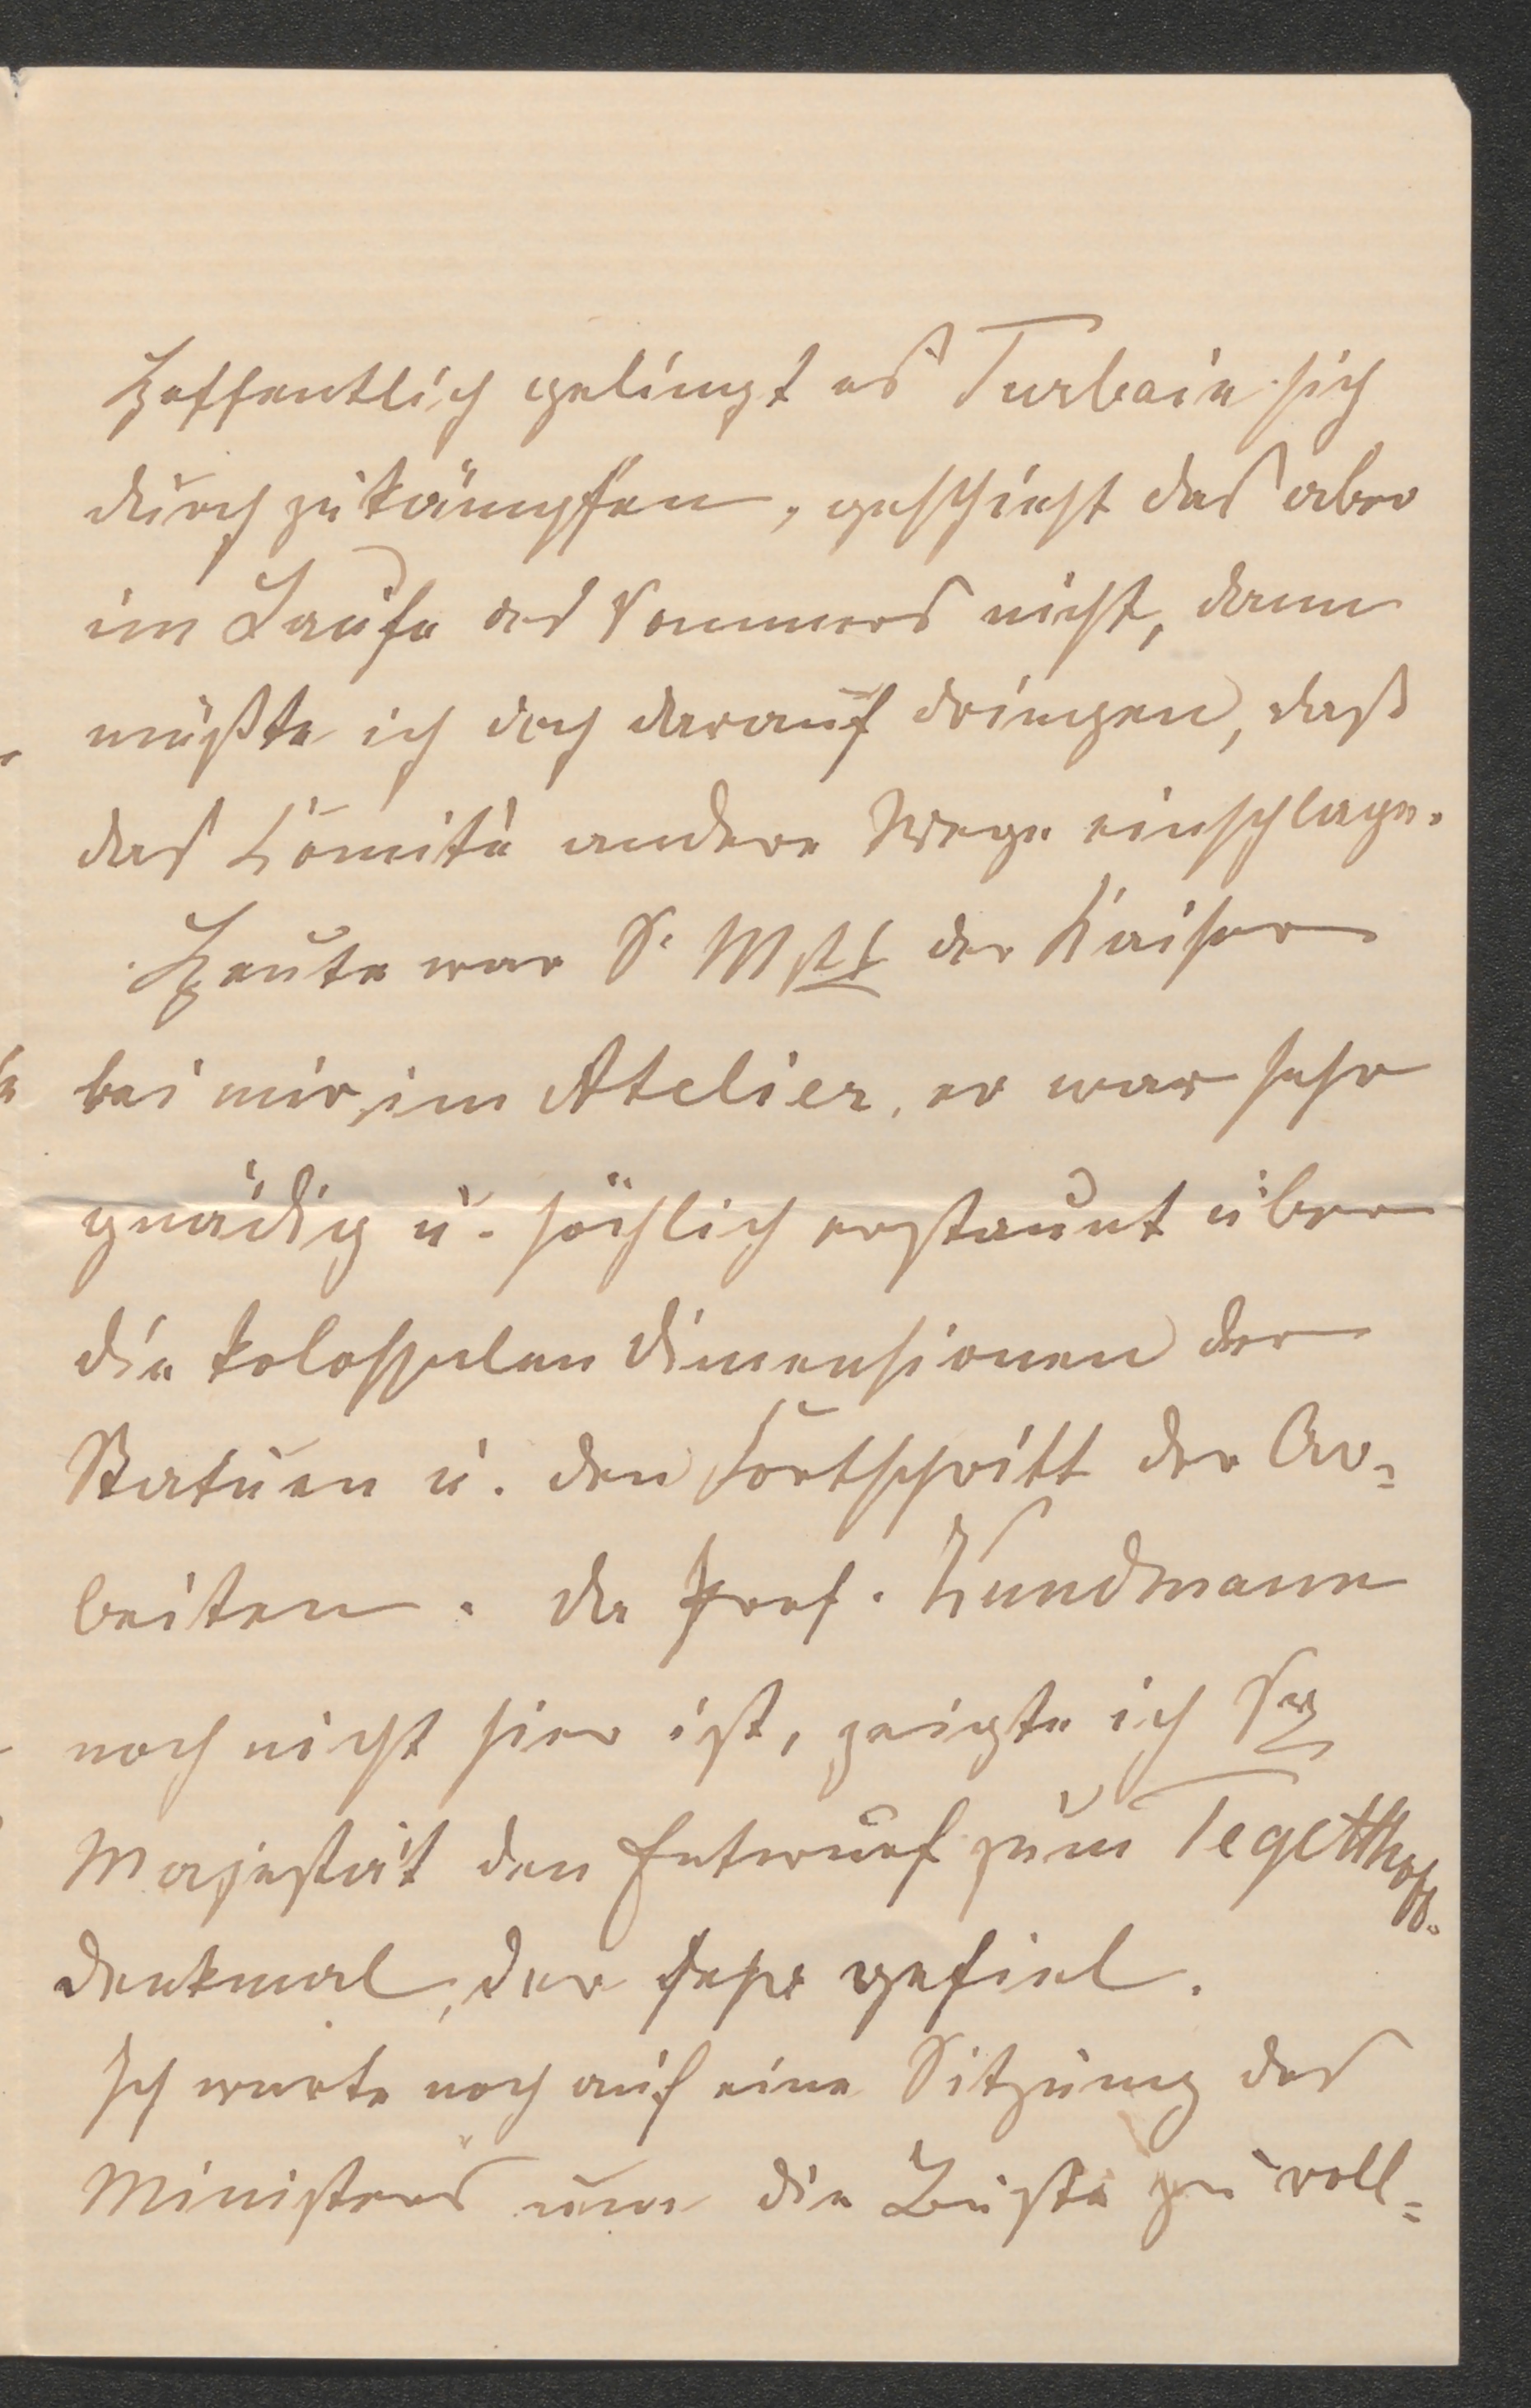 Hoffentlich gelingt es Turbain sich
durch zu kämpfen, geschieht das aber
im Laufe des Sommers nicht, dann
müßte ich doch darauf dringen, daß
das Comité andere Wege einschlage.
Heute war Se Mstt der Kaiser
bei mir im Atelier, er war sehr
gnädig u. höchlich erstaunt über
die kolossalen Dimensionen der
Statuen u. den Fortschritt der Ar=
beiten. Da Prof. Kundmann
noch nicht hier ist, zeigte ich Sr
Majestät den Entwurf zum Tegetthoff-
denkmal, der sehr gefiel.
Ich warte noch auf eine Sitzung des
Ministers um die Büste zu voll=